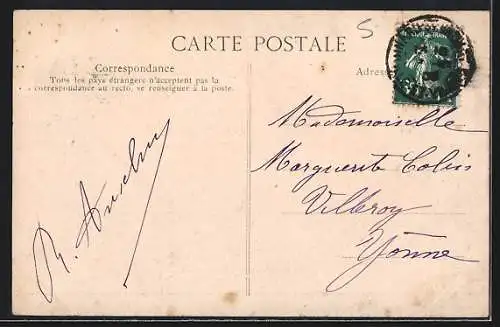 5
CARTE POSTALE
Correspondance
Tous les pays étrangers n'acceptent pas la
correspondance au recto, se renseigner à la poste.
Adres
Mademoiselle
Marguerite Colin
Villeroy
Yonne
R. Anselm